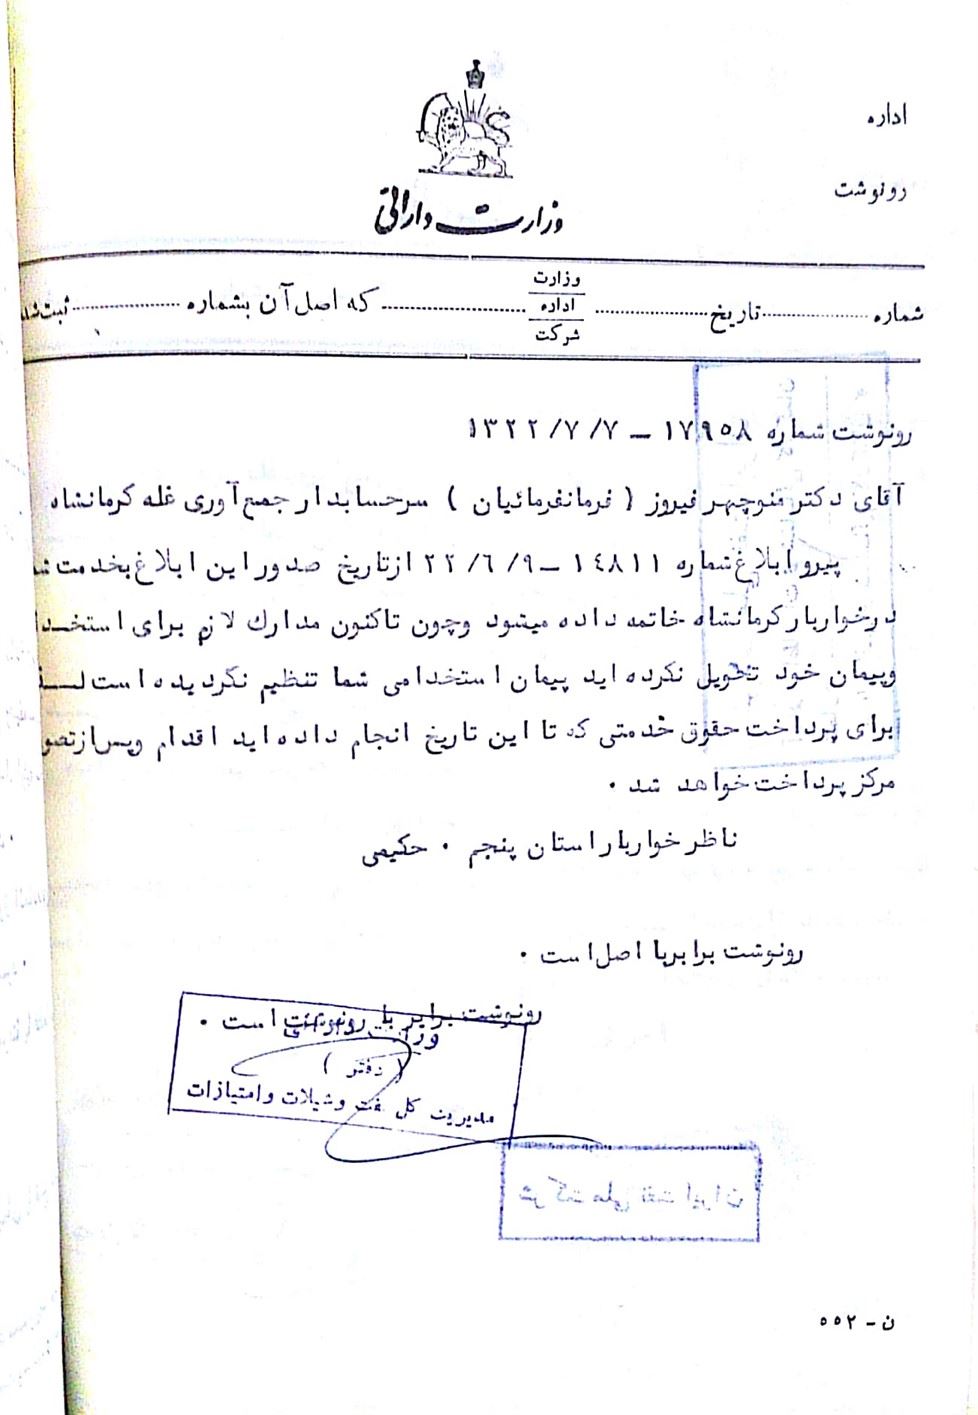 اداره
رونوشت
وزارت دارائی
شماره ........ تاریخ ........ وزارت اداره شرکت ........ که اصل آن بشماره ........ ثبت شد
رونوشت شماره ۱۷۹۵۸ – ۱۳۲۲/۷/۷
آقای دکتر منوچهر فیروز ( فرمانفرمائیان ) سرحسابدار جمع‌آوری غله کرمانشاه
پیرو ابلاغ شماره ۱٤۸۱۱ – ۲۲/٦/۹ از تاریخ صدور این ابلاغ بخدمت
در خواربار کرمانشاه خاتمه داده میشود وچون تاکنون مدارك لازم برای
وپیمان خود تحویل نکرده اید پیمان استخدامی شما تنظیم نگردیده است
برای پرداخت حقوق خدمتی که تا این تاریخ انجام داده اید اقدام وپس از
مرکز پرداخت خواهد شد ۰
ناظر خواربار استان پنجم ۰ حکیمی
رونوشت برابر با اصل است ۰
رونوشت برابر با رونوشت است ۰
( دفتر )
مدیریت کل نفت وشیلات وامتیازات
شرکت ملی نفت ایران
ن – ۵۵۲